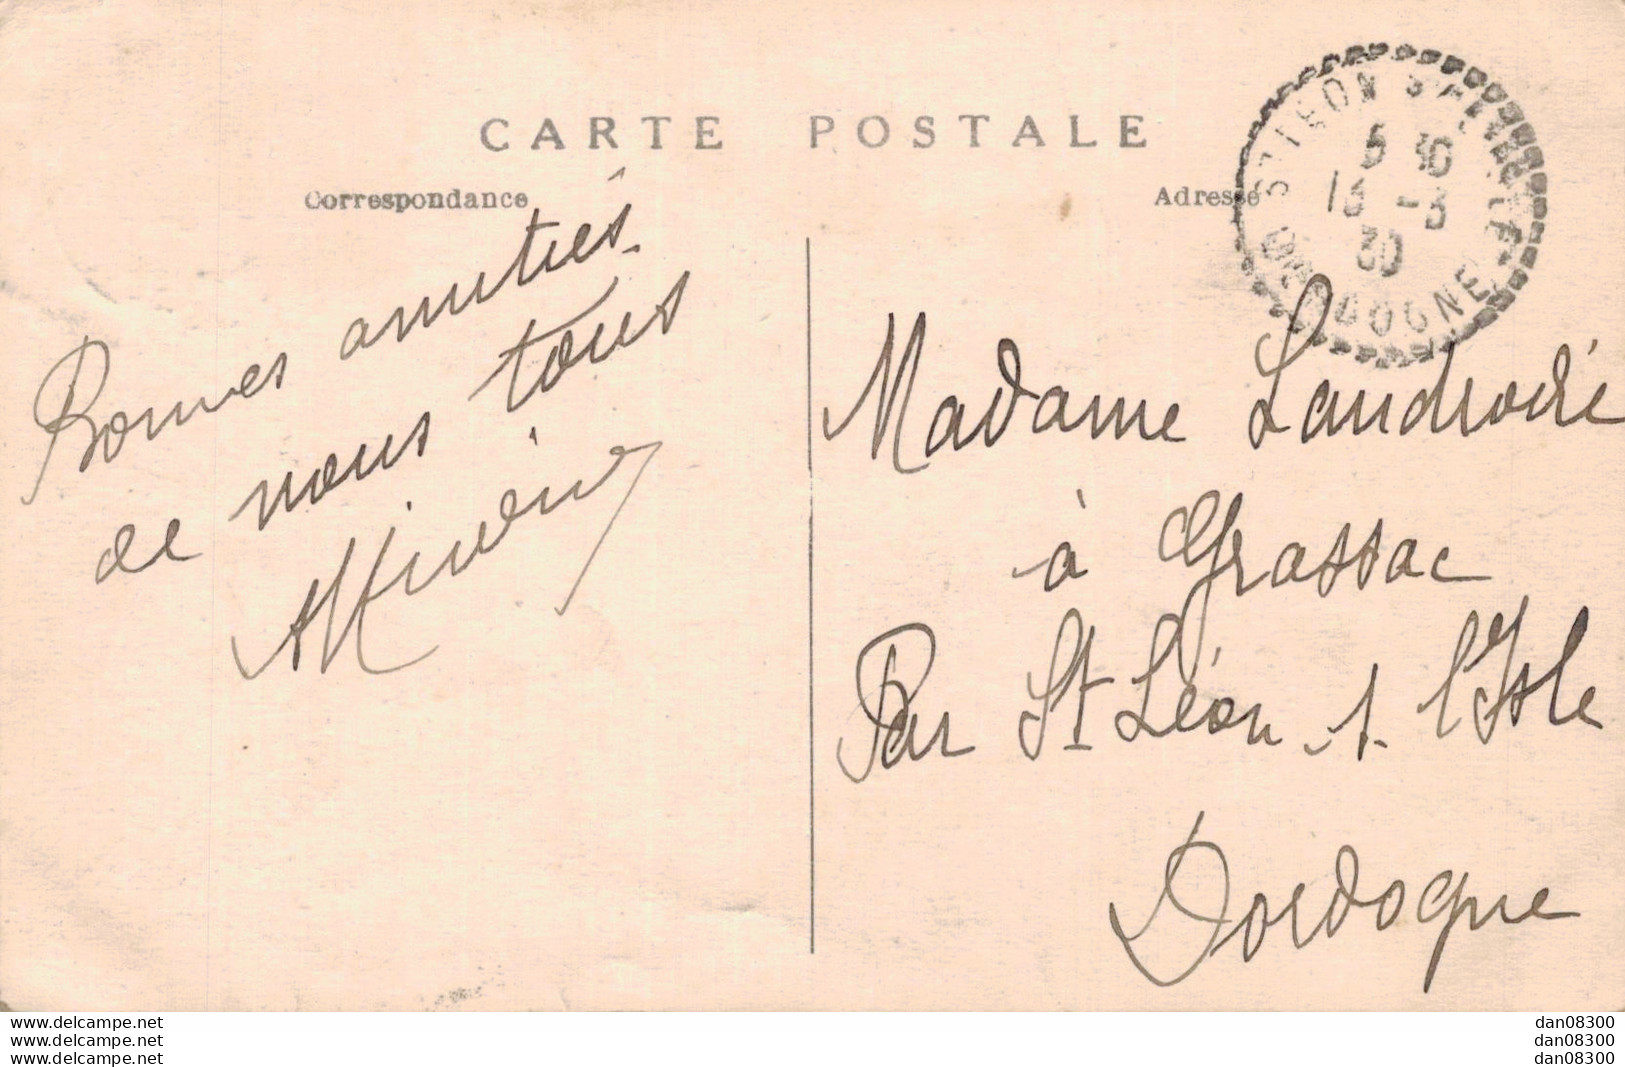 CARTE POSTALE
Correspondance
Adresse
ST LEON S
5 30
13 -3
30
DORDOGNE
Bonnes amitiés
de nous tous
Madame Landrodie
à Grassac
Par St Léon s. l'Isle
Dordogne
www.delcampe.net
www.delcampe.net
www.delcampe.net
dan08300
dan08300
dan08300